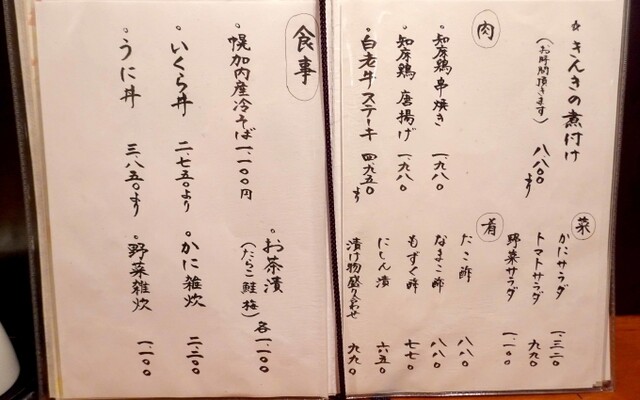 ☆きんきの煮付け
(お時間頂きます)
八、八〇〇より
肉
知床鶏串焼き 一、九八〇
知床鶏唐揚げ 一、九八〇
白老牛ステーキ 四、九五〇より
菜
かにサラダ 一、三二〇
トマトサラダ 九九〇
野菜サラダ 一、一〇〇
肴
たこ酢 八八〇
なまこ酢 八八〇
もずく酢 七七〇
にしん漬 六五〇
漬け物盛り合わせ 九九〇
食事
幌加内産冷そば 一、一〇〇円
。いくら丼 二、七五〇より
。うに丼 三、八五〇より
。お茶漬
(たらこ 鮭 梅) 各一、一〇〇
。かに雑炊 二、二〇〇
。野菜雑炊 一、一〇〇